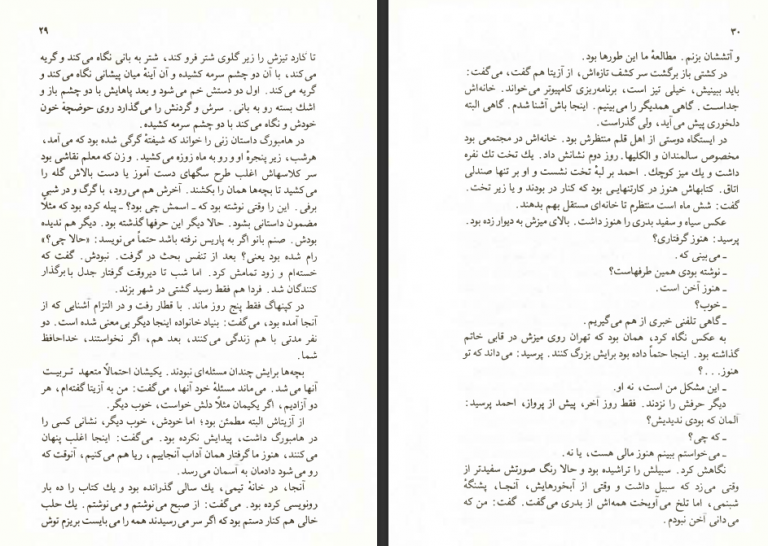 ۲۹
تا کارد تیزش را زیر گلوی شتر فرو کند، شتر به بانی نگاه می‌کند و گریه
می‌کند، با آن دو چشم سرمه کشیده و آن آینهٔ میان پیشانی نگاه می‌کند و
گریه می‌کند. اول دو دستش خم می‌شود و بعد پاهایش با دو چشم باز و
اشك بسته رو به بانی. سرش و گردنش را می‌گذارد روی حوضچهٔ خون
خودش و نگاه می‌کند با دو چشم سرمه کشیده.
در هامبورگ داستان زنی را خواند که شیفتهٔ گرگی شده بود که می‌آمد،
هرشب، زیر پنجرهٔ او و رو به ماه زوزه می‌کشید. و زن که معلم نقاشی بود
سر کلاسهاش اغلب طرح سگهای دست آموز یا دست بالاش گله را
می‌کشید تا بچه‌ها همان را بکشند. آخرش هم می‌رود، با گرگ و در شبی
برفی. این را وقتی نوشته بود که ـ اسمش چی بود؟ ـ پیله کرده بود که مثلاً
مضمون داستانی بشود. حالا دیگر این حرفها گذشته بود. دیگر هم ندیده
بودش. صنم بانو اگر به پاریس نرفته باشد حتماً می‌نویسد: «حالا چی؟»
رام شده بود یعنی؟ بعد از تنفس بحث در گرفت. نبودش. گفت که
خسته‌ام و زود تمامش کرد. اما شب تا دیروقت گرفتار جدل با برگذار
کنندگان شد. فردا هم فقط رسید گشتی در شهر بزند.
در کپنهاگ فقط پنج روز ماند. با قطار رفت و در التزام آشنایی که از
آنجا آمده بود، می‌گفت: بنیاد خانواده اینجا دیگر بی‌معنی شده است. دو
نفر مدتی با هم زندگی می‌کنند، بعد هم، اگر نخواستند، خداحافظ
شما.
بچه‌ها برایش چندان مسئله‌ای نبودند. یکیشان احتمالاً متعهد تربیت
آنها می‌شد. می‌ماند مسئلهٔ خود آنها، می‌گفت: من به آزیتا گفته‌ام، هر
دو آزادیم، اگر یکیمان مثلاً دلش خواست، خوب دیگر.
از آزیتاش البته مطمئن بود؛ اما خودش، خوب دیگر، نشانی کسی را
در هامبورگ داشت، پیدایش نکرده بود. می‌گفت: اینجا اغلب پنهان
می‌کنند، هنوز ما گرفتار همان آداب آنجاییم، ریا هم می‌کنیم، آنوقت که
رو می‌شود دادمان به آسمان می‌رسد.
آنجا، در خانهٔ تیمی، یك سالی گذرانده بود و یك کتاب را ده بار
رونویسی کرده بود. می‌گفت: از صبح می‌نوشتم و می‌نوشتم. یك حلب
خالی هم کنار دستم بود که اگر سر می‌رسیدند همه را می‌بایست بریزم توش
۳۰
و آتششان بزنم. مطالعهٔ ما این طورها بود.
در کشتی باز برگشت سر کشف تازه‌اش، از آزیتا هم گفت، می‌گفت:
باید ببینیش، خیلی تیز است، برنامه‌ریزی کامپیوتر می‌خواند. خانه‌اش
جداست. گاهی همدیگر را می‌بینیم. اینجا باش آشنا شدم. گاهی البته
دلخوری پیش می‌آید، ولی گذراست.
در ایستگاه دوستی از اهل قلم منتظرش بود. خانه‌اش در مجتمعی بود
مخصوص سالمندان و الکلیها. روز دوم نشانش داد. یك تخت تك نفره
داشت و یك میز کوچك. احمد بر لبهٔ تخت نشست و او بر تنها صندلی
اتاق. کتابهاش هنوز در کارتنهایی بود که کنار در بودند و یا زیر تخت.
گفت: شش ماه است منتظرم تا خانه‌ای مستقل بهم بدهند.
عکس سیاه و سفید بدری را هنوز داشت. بالای میزش به دیوار زده بود.
پرسید: هنوز گرفتاری؟
ـ می‌بینی که.
ـ نوشته بودی همین طرفهاست؟
ـ هنوز آخن است.
ـ خوب؟
ـ گاهی تلفنی خبری از هم می‌گیریم.
به عکس نگاه کرد، همان بود که تهران روی میزش در قابی خاتم
گذاشته بود. اینجا حتماً داده بود برایش بزرگ کنند. پرسید: می‌داند که تو
هنوز...؟
ـ این مشکل من است، نه او.
دیگر حرفش را نزدند. فقط روز آخر، پیش از پرواز، احمد پرسید:
آلمان که بودی ندیدیش؟
ـ که چی؟
ـ می‌خواستم ببینم هنوز مالی هست، یا نه.
نگاهش کرد. سبیلش را تراشیده بود و حالا رنگ صورتش سفیدتر از
وقتی می‌زد که سبیل داشت و وقتی از آبخورهایش، آنجا، پشنگهٔ
شبنمی، اما تلخ می‌آویخت همه‌اش از بدری می‌گفت. گفت: من که
می‌دانی آخن نبودم.